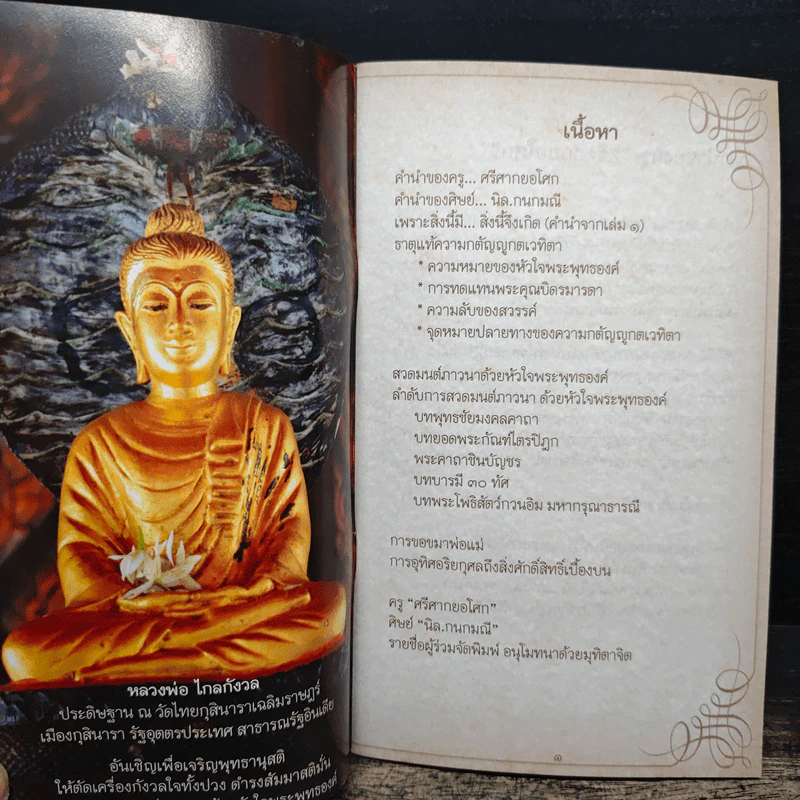 หลวงพ่อ ไกลกังวล
ประดิษฐาน ณ วัดไทยกุสินาราเฉลิมราชฎร์
เมืองกุสินารา รัฐอุตตรประเทศ สาธารณรัฐอินเดีย
อันเชิญเพื่อเจริญพุทธานุสติ
ให้ตัดเครื่องกังวลใจทั้งปวง ดำรงสัมมาสติมั่น
เนื้อหา
คำนำของครู... ศรีศากยอโศก
คำนำของศิษย์... นิล.กนกมณี
เพราะสิ่งนี้มี... สิ่งนี้จึงเกิด (คำนำจากเล่ม ๑)
ธาตุแท้ความกตัญญูกตเวทิตา
* ความหมายของหัวใจพระพุทธองค์
* การทดแทนพระคุณบิดรมารดา
* ความลับของสวรรค์
* จุดหมายปลายทางของความกตัญญูกตเวทิตา
สวดมนต์ภาวนาด้วยหัวใจพระพุทธองค์
ลำดับการสวดมนต์ภาวนา ด้วยหัวใจพระพุทธองค์
บทพุทธชัยมงคลคาถา
บทยอดพระกัณฑ์ไตรปิฎก
พระคาถาชินบัญชร
บทบารมี ๓๐ ทัศ
บทพระโพธิสัตว์กวนอิม มหากรุณาธารณี
การขอขมาพ่อแม่
การอุทิศอริยกุศลถึงสิ่งศักดิ์สิทธิ์เบื้องบน
ครู “ศรีศากยอโศก”
ศิษย์ “นิล.กนกมณี”
รายชื่อผู้ร่วมจัดพิมพ์ อนุโมทนาด้วยมุทิตาจิต